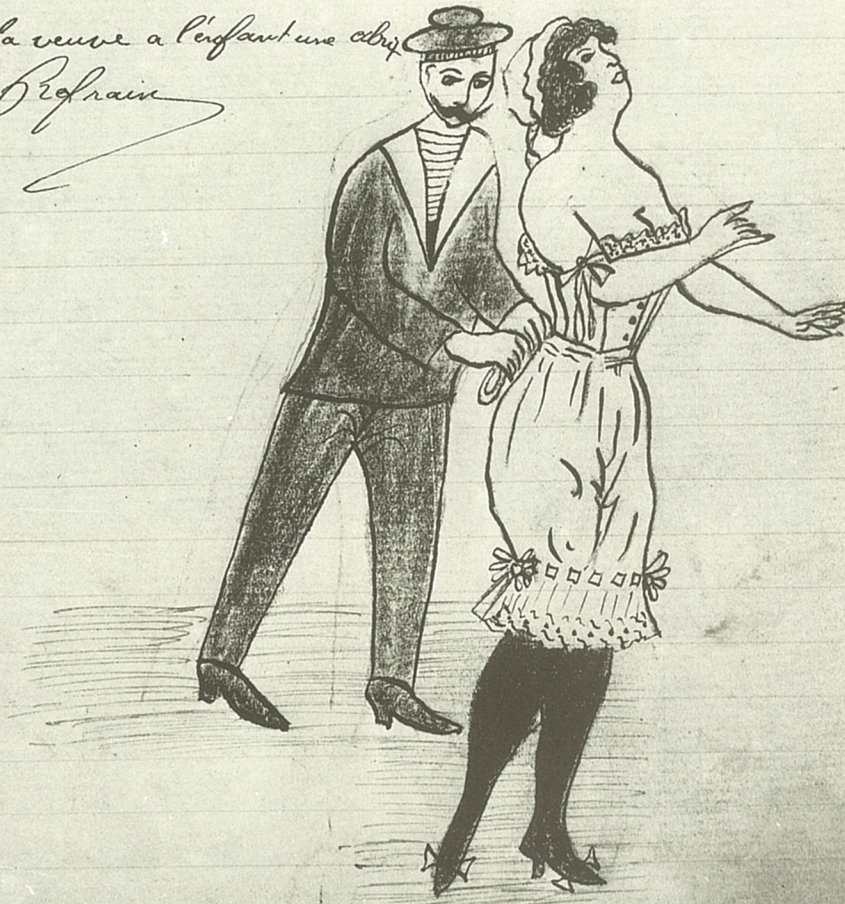 la veuve a l'enfant une
Refrain